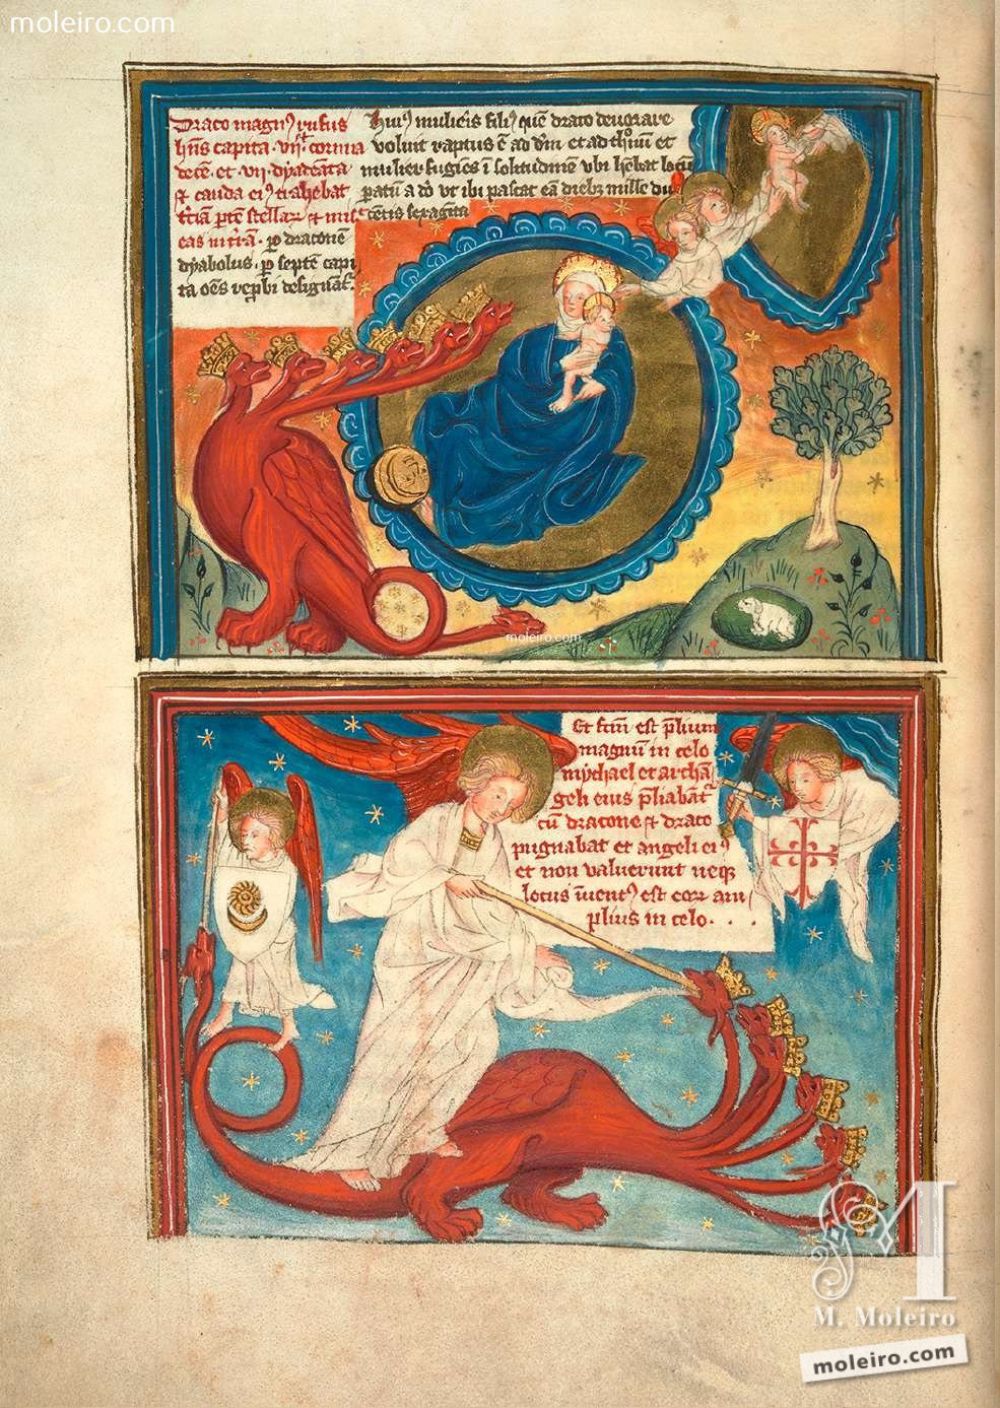 moleiro.com
Draco magnꝰ rufus
hñs capita · vii · et cornua
decē · et · vii · dyadēata
et cauda eiꝰ trahebat
t̄ciā ptē stellaꝝ et misit
eas in t̄rā · p draconē
dyabolus · p septē capi
ta oēs
Huiꝰ mulieris filiꝰ quē draco deuorare
voluit raptus ē ad dm̄ et ad thronū et
mulier fugiēs ī solitudinē vbi hēbat locū
patū a do vt ibi pascat eā diebꝫ mille du
centis sexaginta
moleiro.com
Et fcm̄ est p̄lium
magnū in celo
mychael et archā
geli eius p̄liabant
cū dracone et draco
pugnabat et angeli eiꝰ
et non valuerunt neqꝫ
locus īuentꝰ est eoꝝ am
plius in celo · . .
M
M. Moleiro
moleiro.com